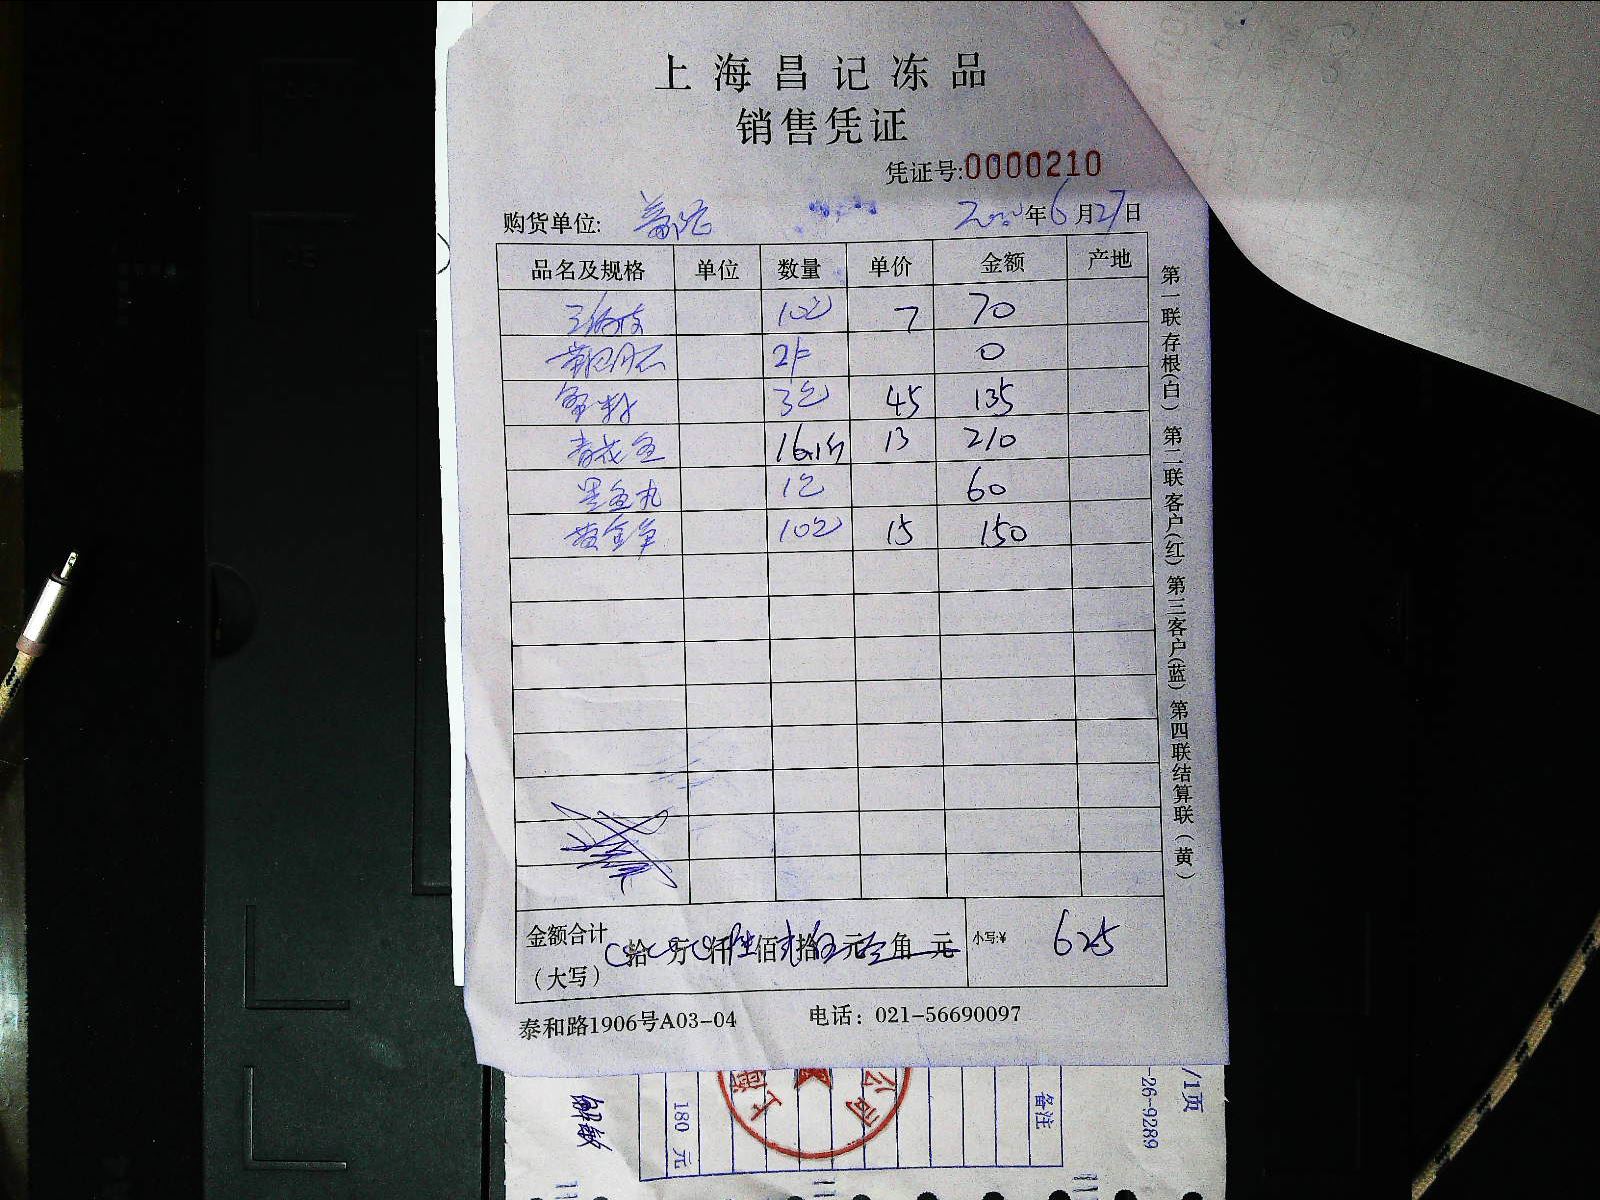 上海昌记冻品
销售凭证
凭证号:0000210
购货单位: 年6月27日
品名及规格 单位 数量 单价 金额 产地
10包 7 70
0
3包 45 135
青花鱼 13 210
墨鱼丸 1包 60
黄金羊 10包 15 150
金额合计(大写) 拾 万 仟陆佰贰拾伍元 角 元 小写:¥ 625
泰和路1906号A03-04 电话: 021-56690097
第一联存根(白) 第二联客户(红) 第三客户(蓝) 第四联结算联(黄)
180 元
上海 公司
备注
-26-9289
/1页